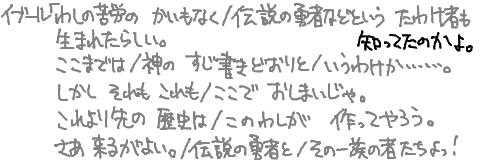 イブール「わしの苦労の かいもなく/伝説の勇者などという たわけ者も
生まれたらしい。 知ってたのかよ。
ここまでは/神の すじ書きどおりと/いうわけか……。
しかし それも これも/ここで おしまいじゃ。
これより先の 歴史は/このわしが 作ってやろう。
さあ 来るがよい。/伝説の勇者と/その一族の者たちよっ!